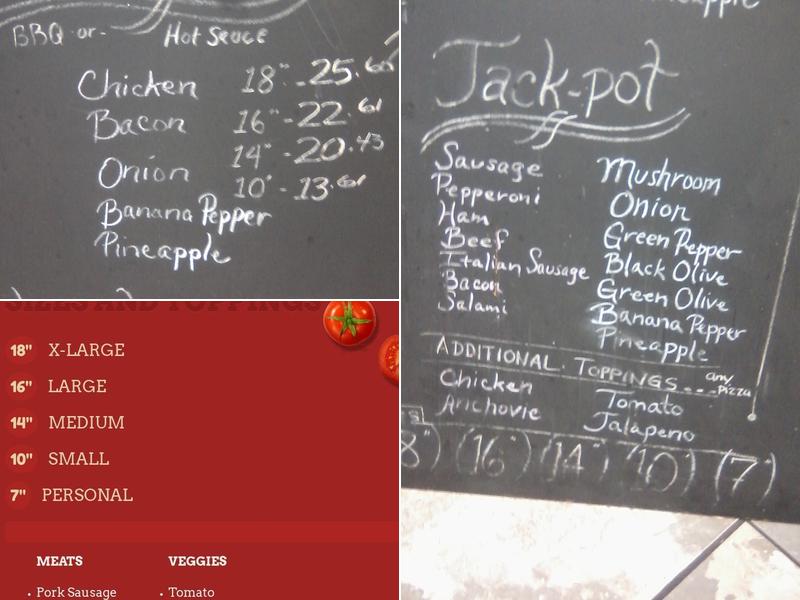 BBQ -or- Hot Sauce
Chicken 18" - 25.
Bacon 16" - 22.61
14" - 20.43
Onion
10" - 13.61
Banana Pepper
Pineapple
SIZES AND TOPPINGS
18" X-LARGE
16" LARGE
14" MEDIUM
10" SMALL
7" PERSONAL
MEATS VEGGIES
• Pork Sausage • Tomato
Jack-pot
Sausage Mushroom
Pepperoni Onion
Ham Green Pepper
Beef Black Olive
Italian Sausage Green Olive
Bacon Banana Pepper
Salami Pineapple
ADDITIONAL TOPPINGS... any pizza
Chicken Tomato
Anichovie Jalapeno
8") (16") (14") (10") (7")